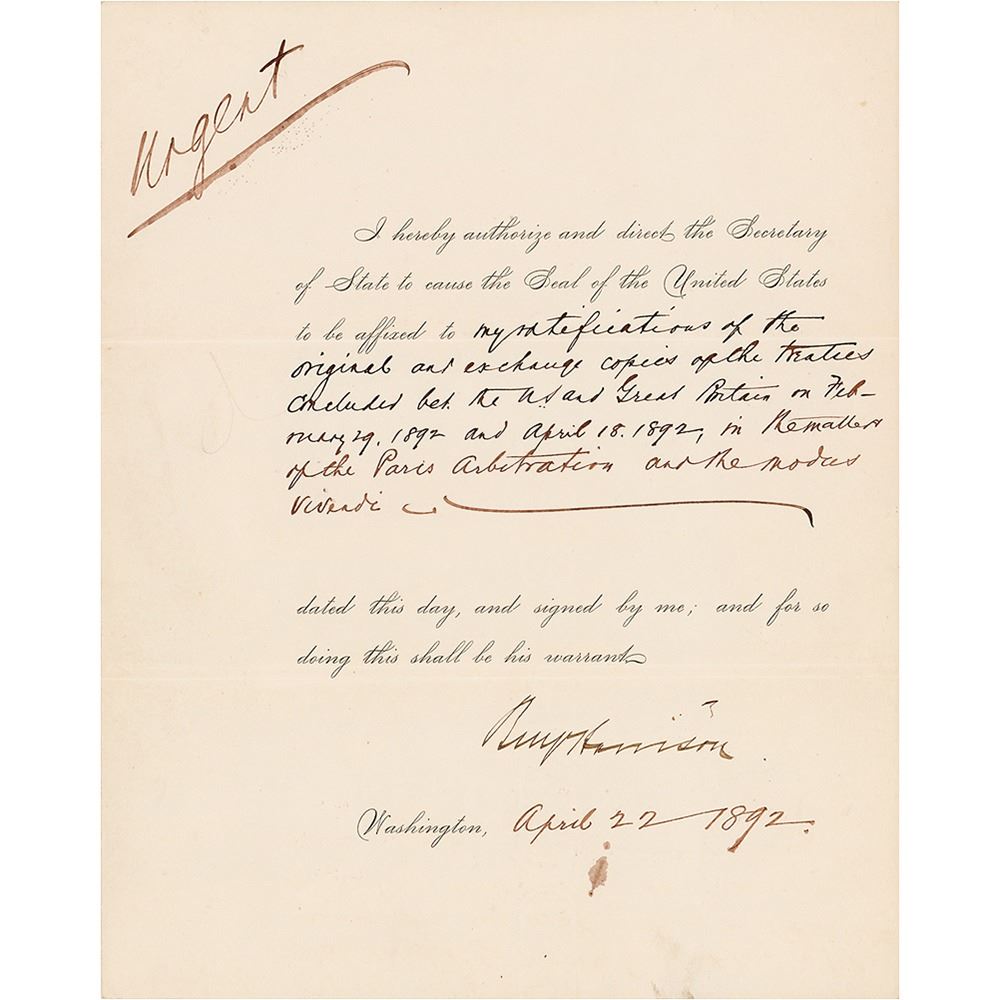 Urgent
I hereby authorize and direct the Secretary
of State to cause the Seal of the United States
to be affixed to my ratifications of the
original and exchange copies of the treaties
concluded bet. the U.S. and Great Britain on Feb-
ruary 29, 1892 and April 18. 1892, in the matter
of the Paris Arbitration and the modus
vivendi
dated this day, and signed by me; and for so
doing this shall be his warrant
Benj Harrison
Washington, April 22 1892.